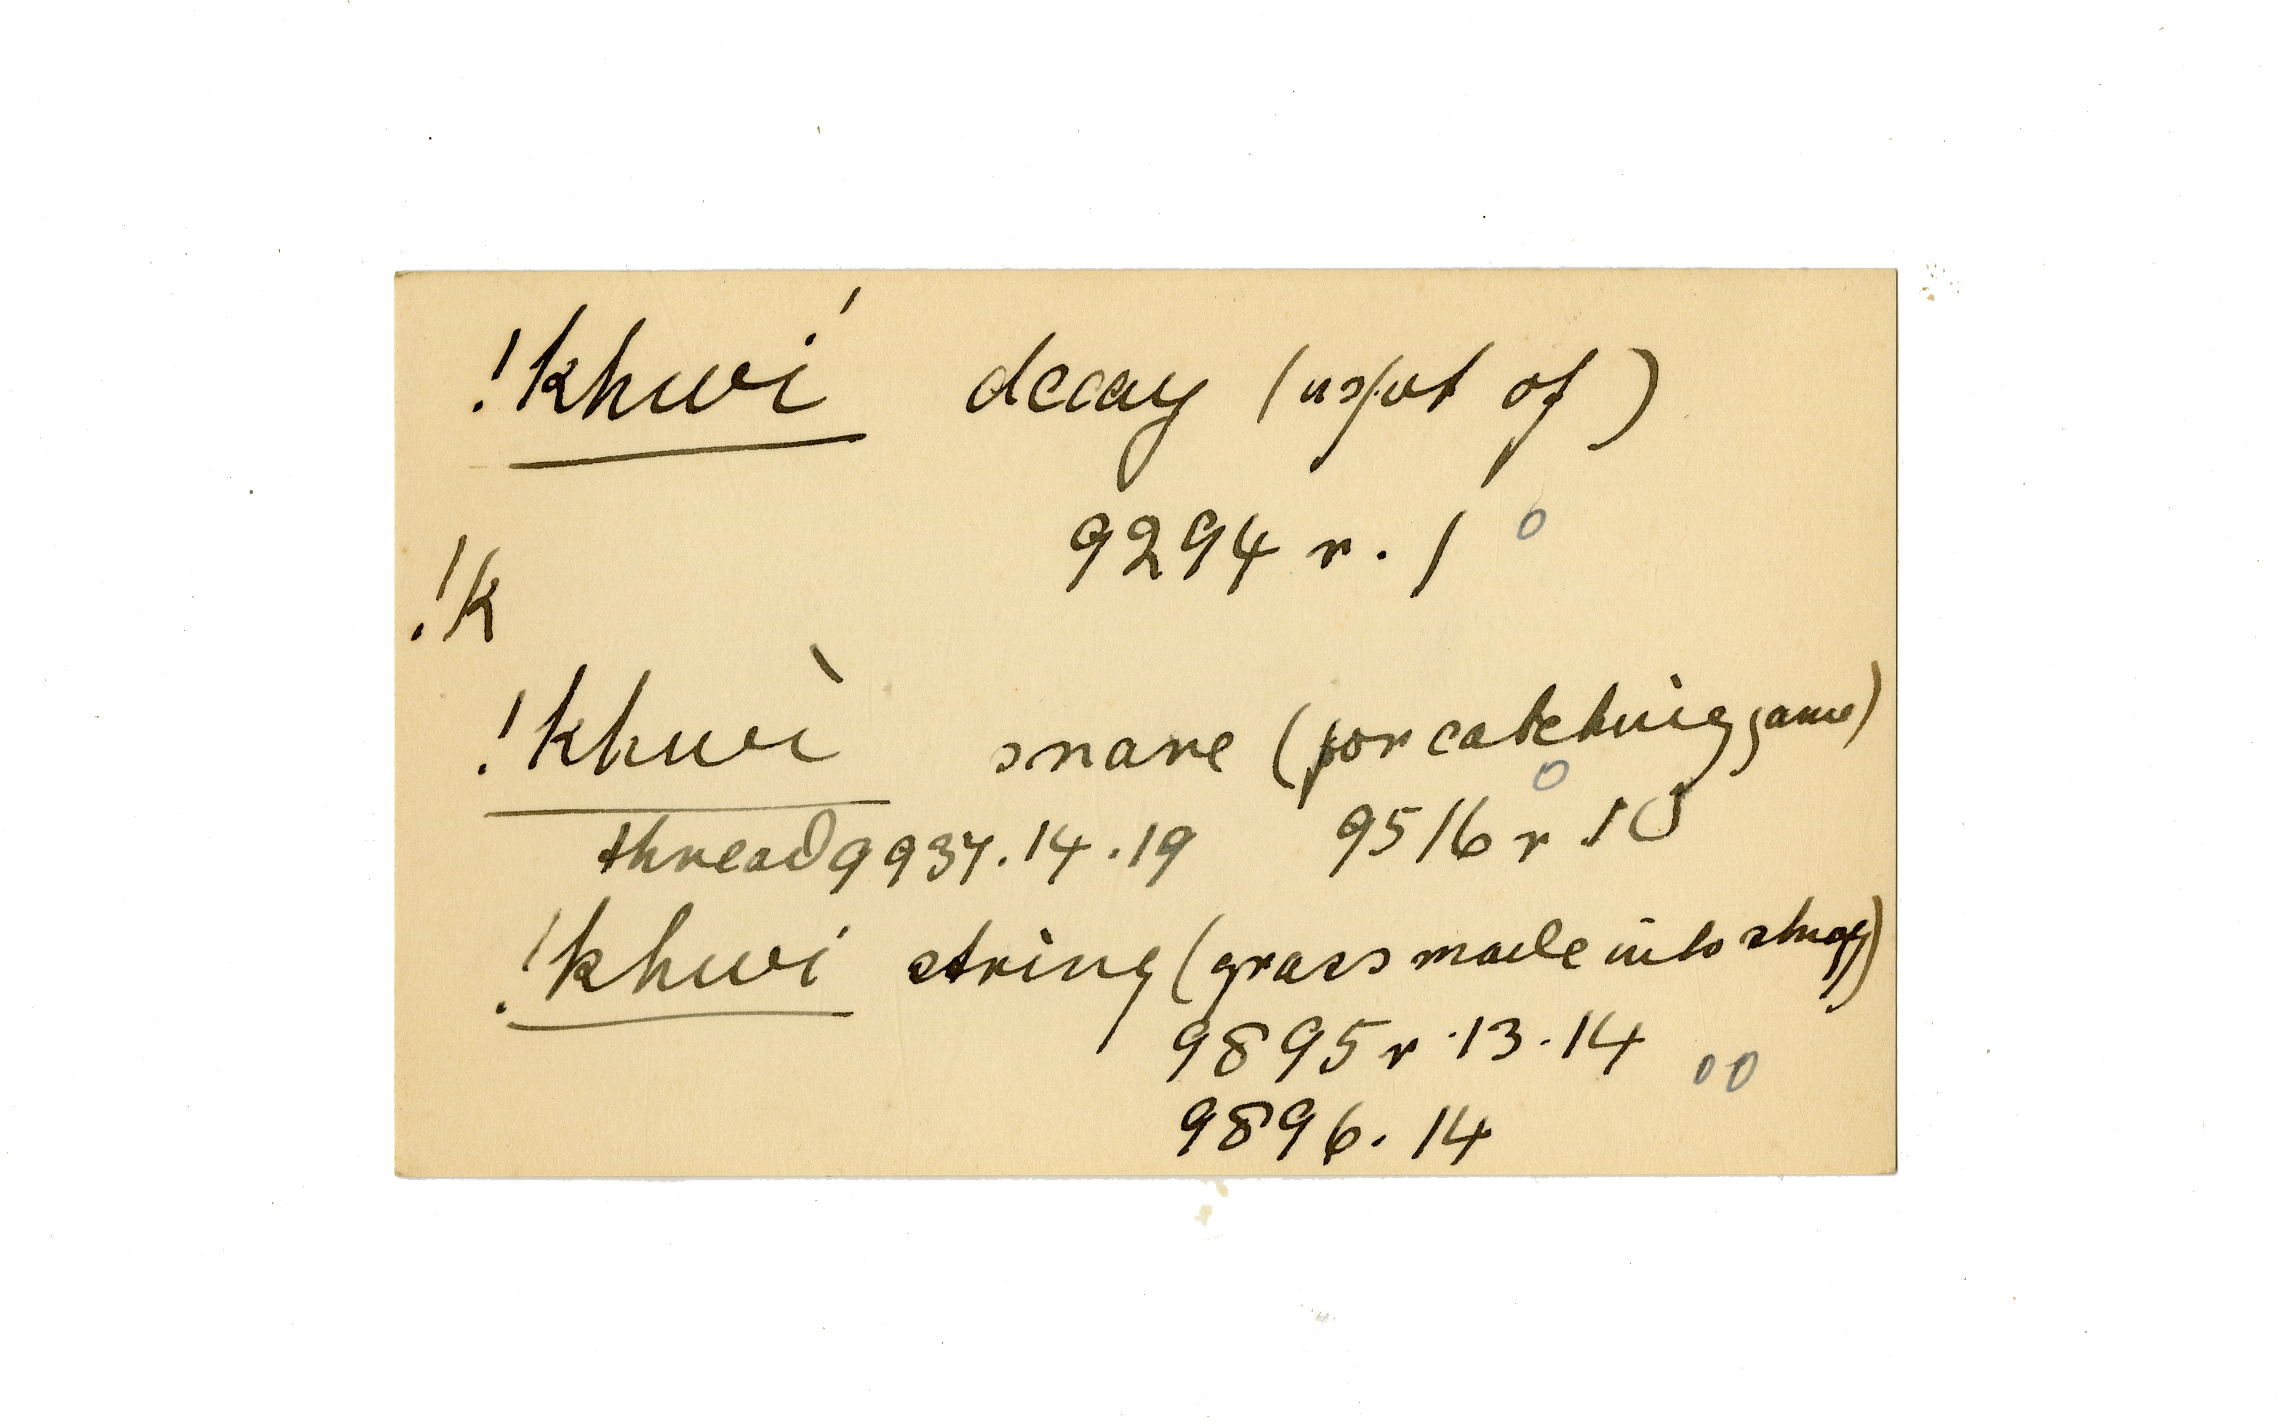 !khwí decay (uspt of)
9294 r. 1 0
!k
!khwì snare (for catching game)
thread 9937.14.19 9516 r. 10 0
!khwi string (grass made into string)
9895 r. 13.14 00
9896. 14